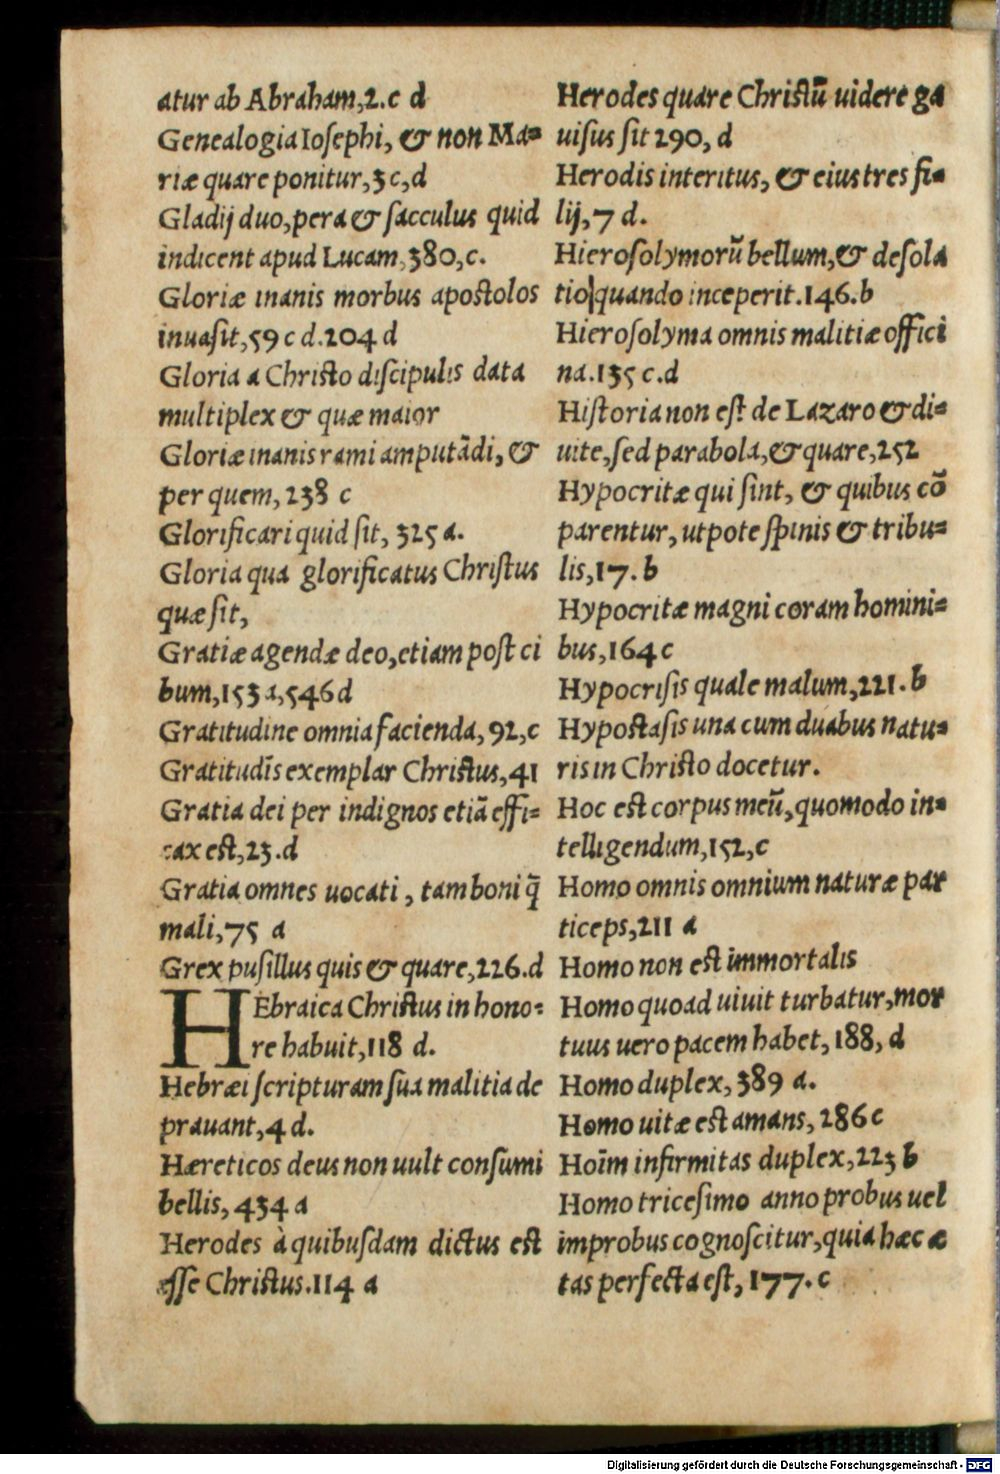 atur ab Abraham,2.c d
Genealogia Ioſephi, & non Ma=
riæ quare ponitur,3 c,d
Gladij duo,pera & ſacculus quid
indicent apud Lucam,380,c.
Gloriæ inanis morbus apoſtolos
inuaſit,59 c d.204 d
Gloria a Chriſto diſcipulis data
multiplex & quæ maior
Gloriæ inanis rami amputãdi, &
per quem, 238 c
Glorificari quid ſit, 325 a.
Gloria qua glorificatus Chriſtus
quæ ſit,
Gratiæ agendæ deo,etiam poſt ci
bum,153 a,546 d
Gratitudine omnia facienda, 92,c
Gratitudīs exemplar Chriſtus,41
Gratia dei per indignos etiã effi=
cax eſt,23.d
Gratia omnes uocati , tam boni q̃
mali,75 a
Grex puſillus quis & quare,226.d
HEbraica Chriſtus in hono=
re habuit,118 d.
Hebræi ſcripturam ſua malitia de
prauant,4 d.
Hæreticos deus non uult conſumi
bellis, 434 a
Herodes à quibuſdam dictus eſt
eſſe Chriſtus.114 a
Herodes quare Chriſtũ uidere ga
uiſus ſit 290, d
Herodis interitus, & eius tres fi=
lij,7 d.
Hieroſolymorũ bellum,& deſola
tio|quando inceperit.146.b
Hieroſolyma omnis malitiæ offici
na.135 c.d
Hiſtoria non eſt de Lazaro & di=
uite,ſed parabola,& quare,252
Hypocritæ qui ſint, & quibus cõ
parentur, utpote ſpinis & tribu=
lis,17. b
Hypocritæ magni coram homini=
bus,164 c
Hypocriſis quale malum,221. b
Hypoſtaſis una cum duabus natu=
ris in Chriſto docetur.
Hoc eſt corpus meũ,quomodo in=
telligendum,152,c
Homo omnis omnium naturæ par
ticeps,211 a
Homo non eſt immortalis
Homo quoad uiuit turbatur,mor
tuus uero pacem habet, 188, d
Homo duplex, 389 a.
Homo uitæ eſt amans, 286 c
Hoīm infirmitas duplex,223 b
Homo triceſimo anno probus uel
improbus cognoſcitur,quia hæc æ
tas perfecta eſt, 177. c
Digitalisierung gefördert durch die Deutsche Forschungsgemeinschaft - DFG